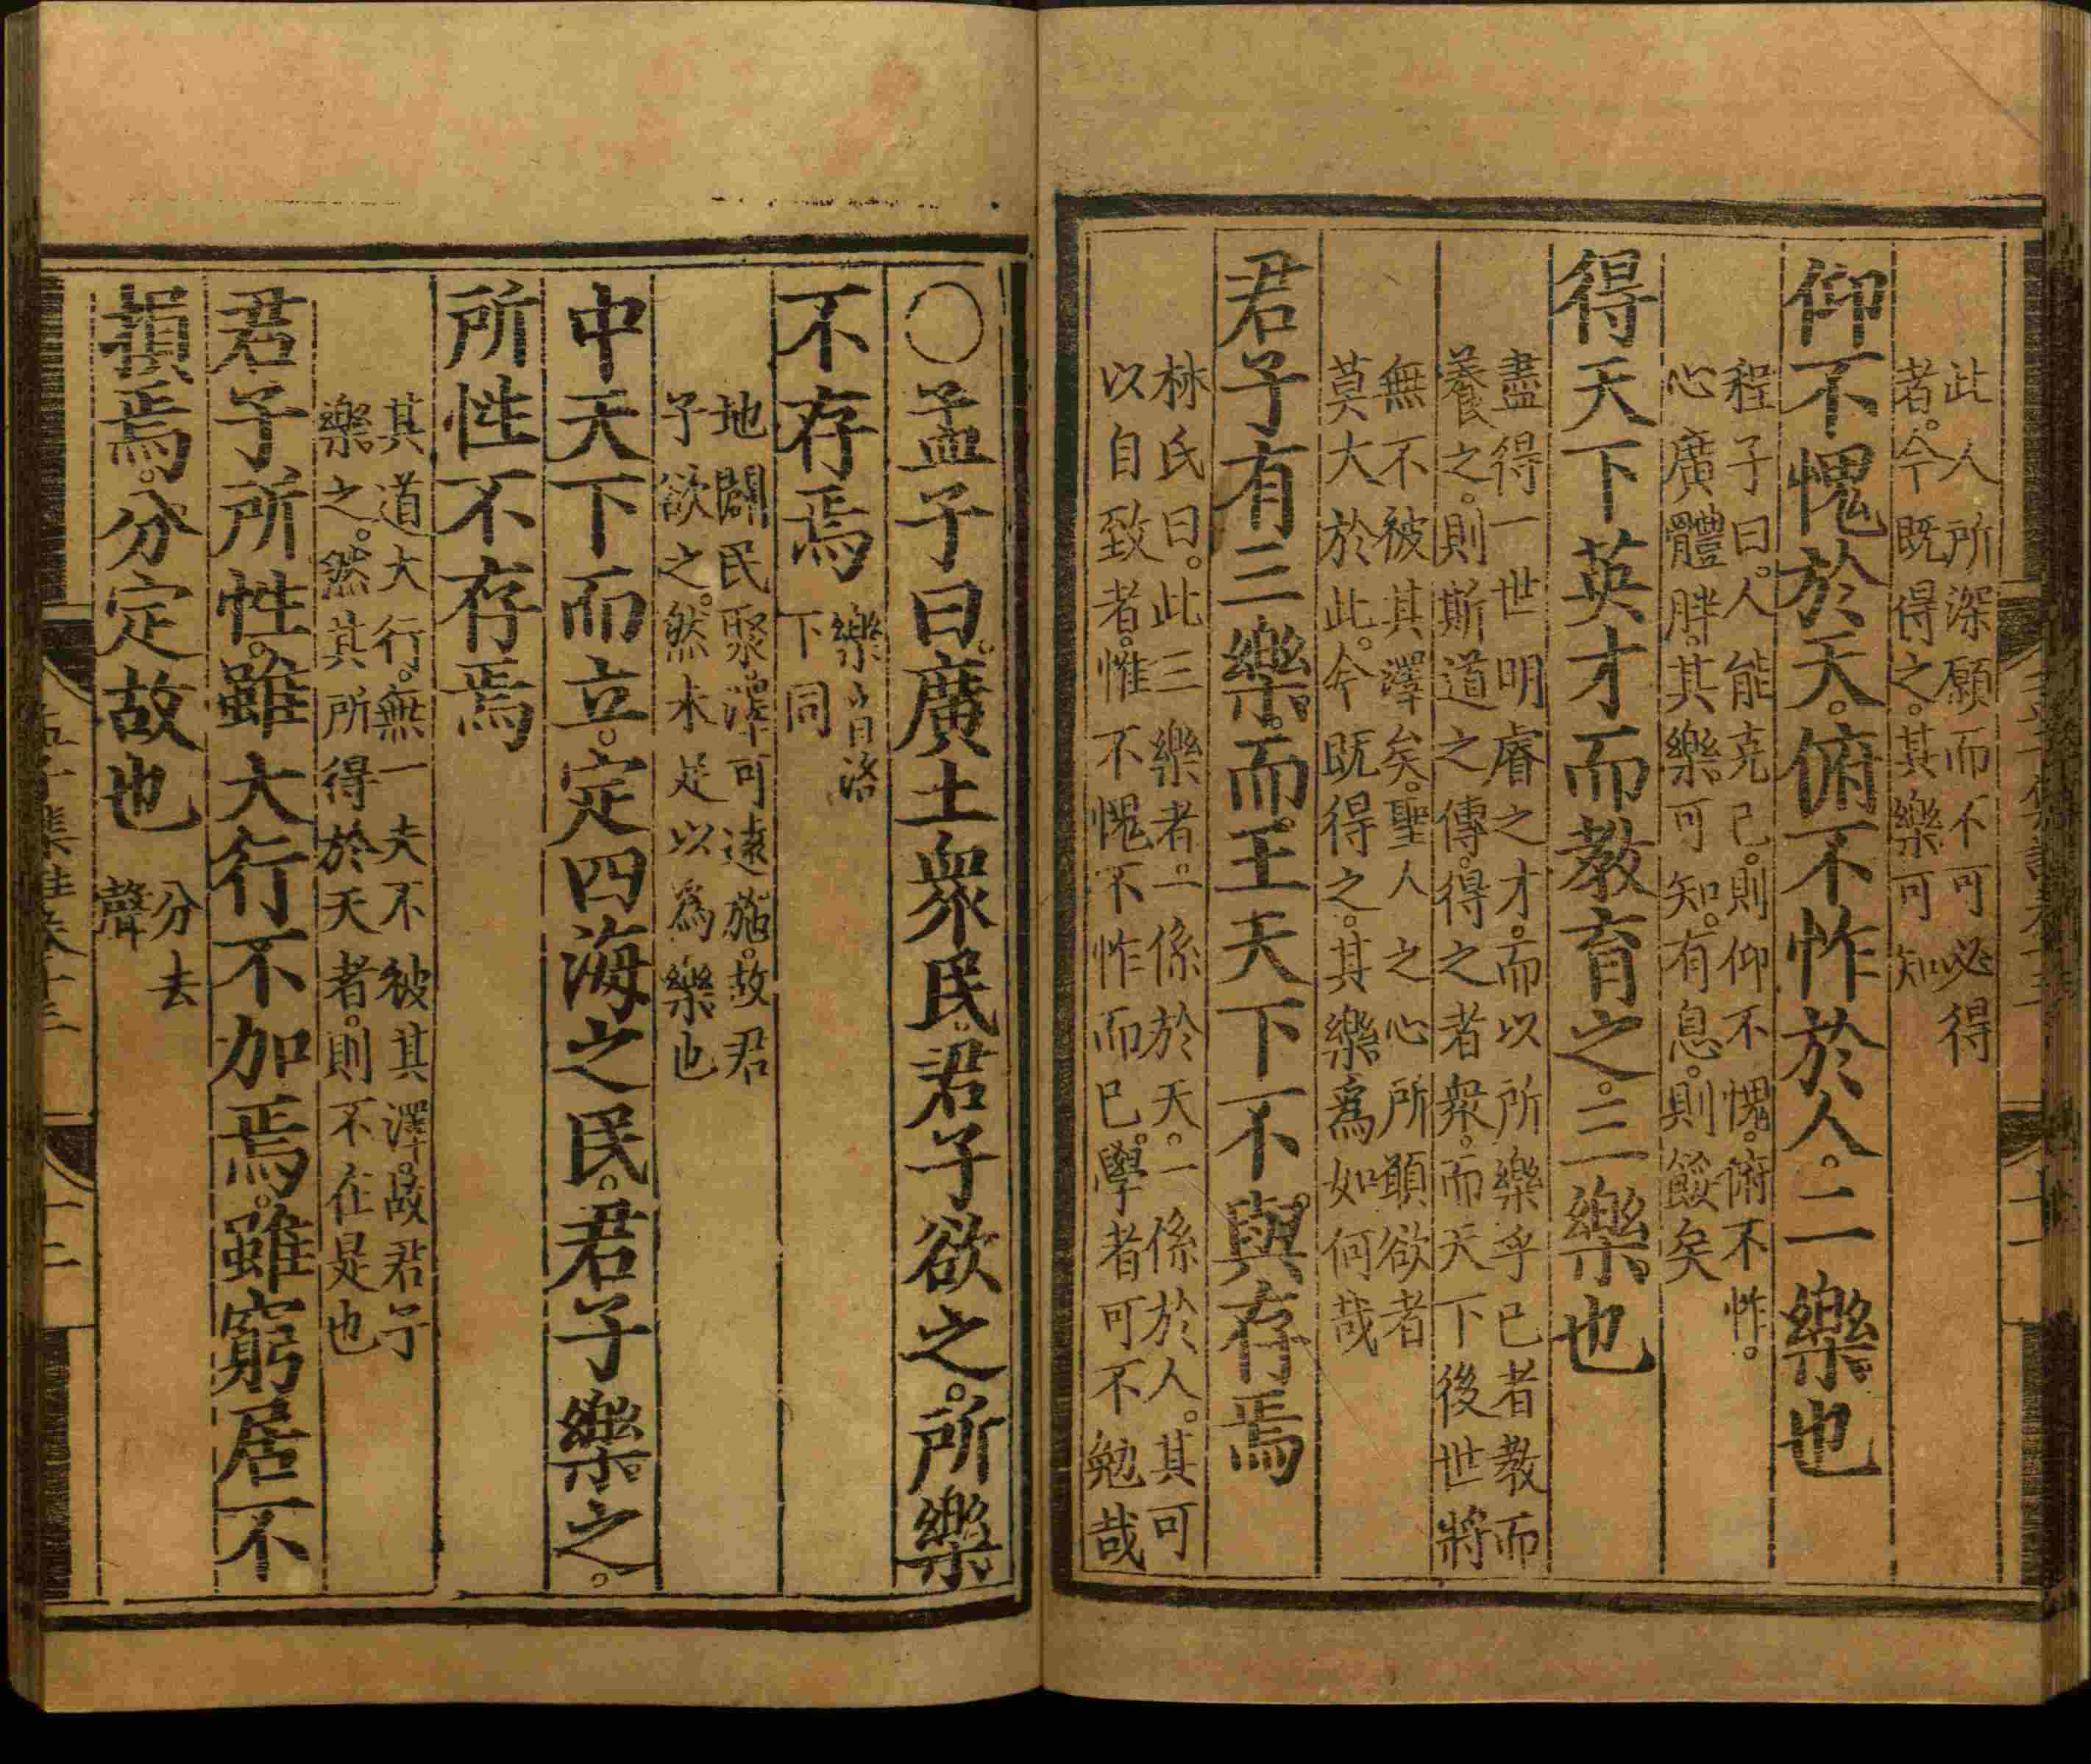 此人所深願而不可必得
者。今既得之。其樂可知
仰不愧於天。俯不怍於人。二樂也
程子曰。人能克己。則仰不愧。俯不怍。
心廣體胖。其樂可知。有息。則餒矣
得天下英才而教育之。三樂也
盡得一世明睿之才。而以所樂乎已者教而
養之。則斯道之傳。得之者衆。而天下後世將
無不被其澤矣。聖人之心所願欲者
莫大於此。今既得之。其樂爲如何哉
君子有三樂。而王天下不與存焉
林氏曰。此三樂者。一係於天。一係於人。其可
以自致者。惟不愧不怍而已。學者可不勉哉
〇孟子曰。廣土衆民。君子欲之。所樂
不存焉
樂音洛
下同
地闢民聚。澤可遠施。故君
子欲之。然未足以爲樂也
中天下而立。定四海之民。君子樂之。
所性不存焉
其道大行。無一夫不被其澤。故君子
樂之。然其所得於天者。則不在是也
君子所性。雖大行不加焉。雖窮居不
損焉。分定故也
分去
聲